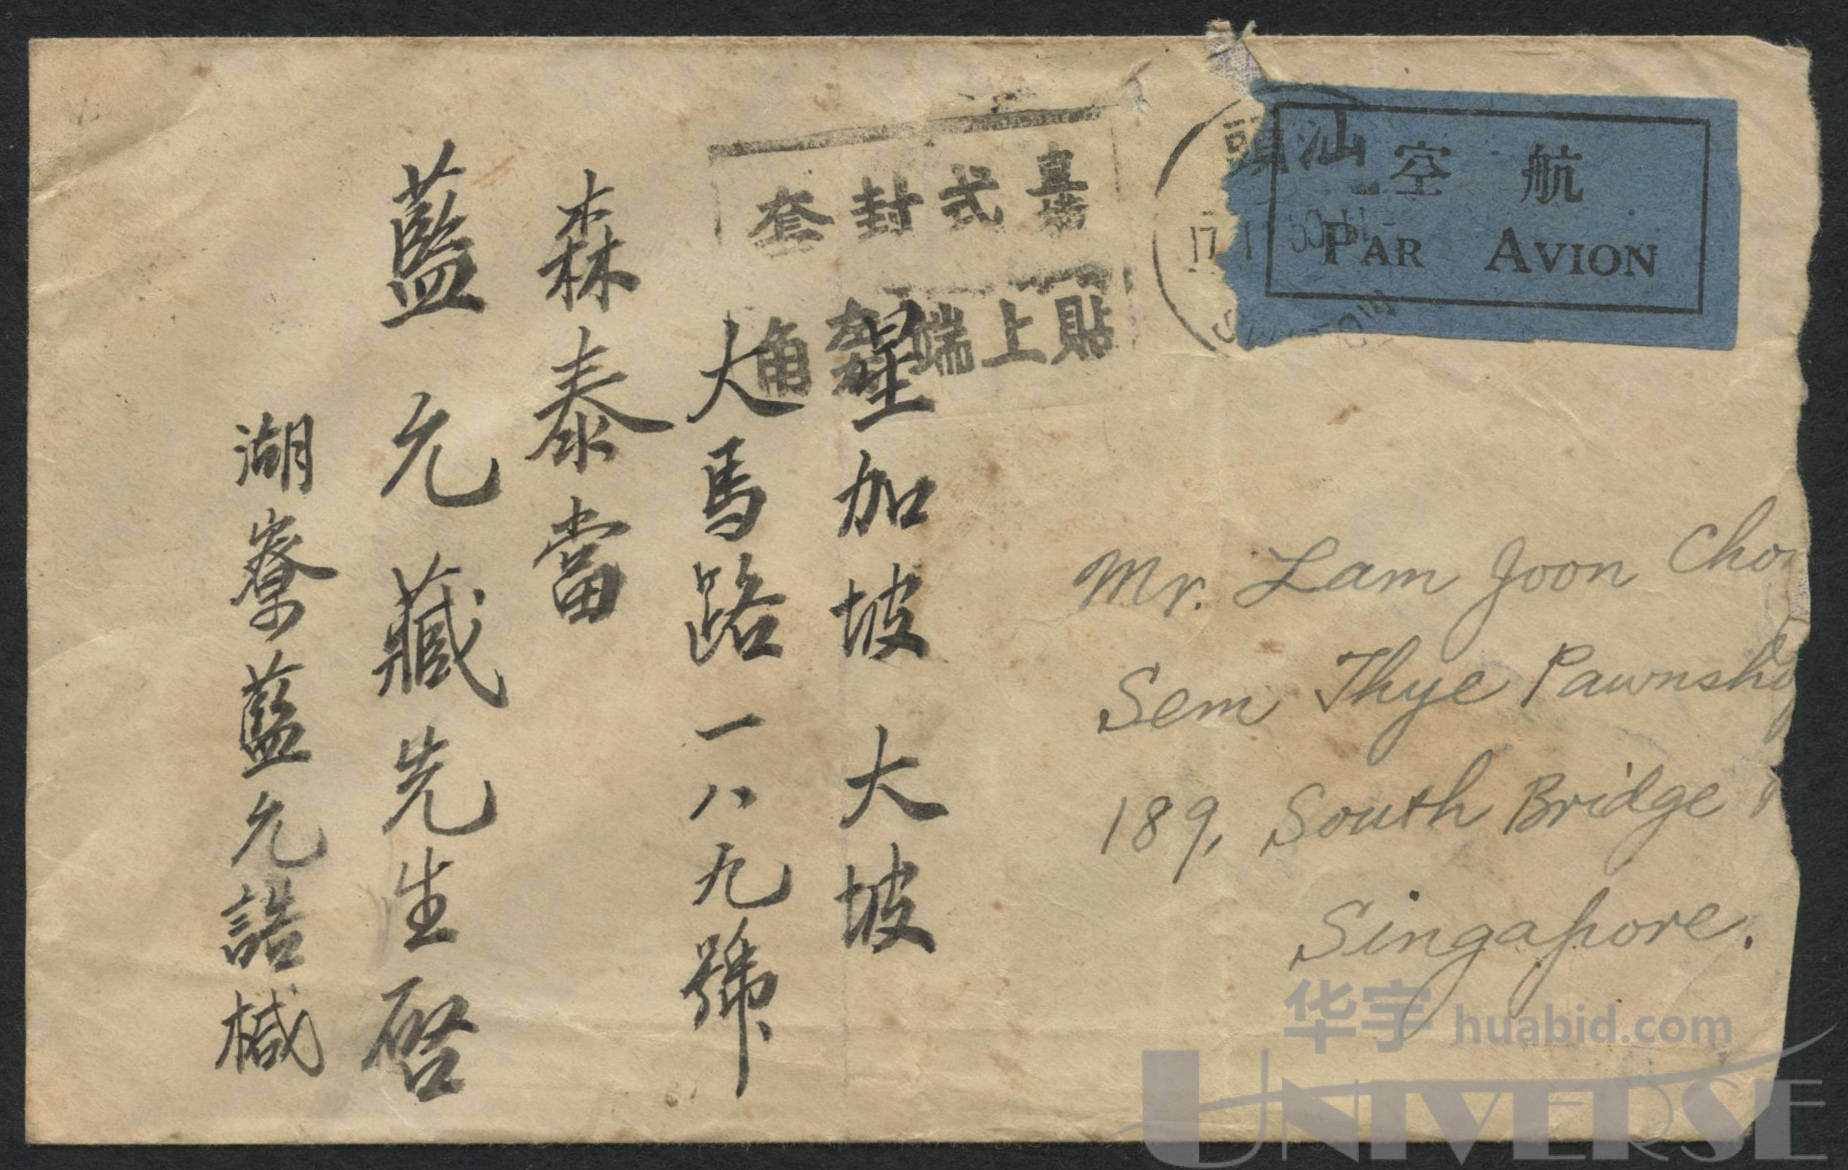 星加坡大坡
大馬路一八九號
森泰當
藍允藏先生啓
湖寮藍允誥椷
套封式
角 端上貼
頭汕
17
空航
PAR AVION
Mr. Lam Joon
Sem Thye
189, South Bridge
Singapore.
华宇 huabid.com
UNIVERSE